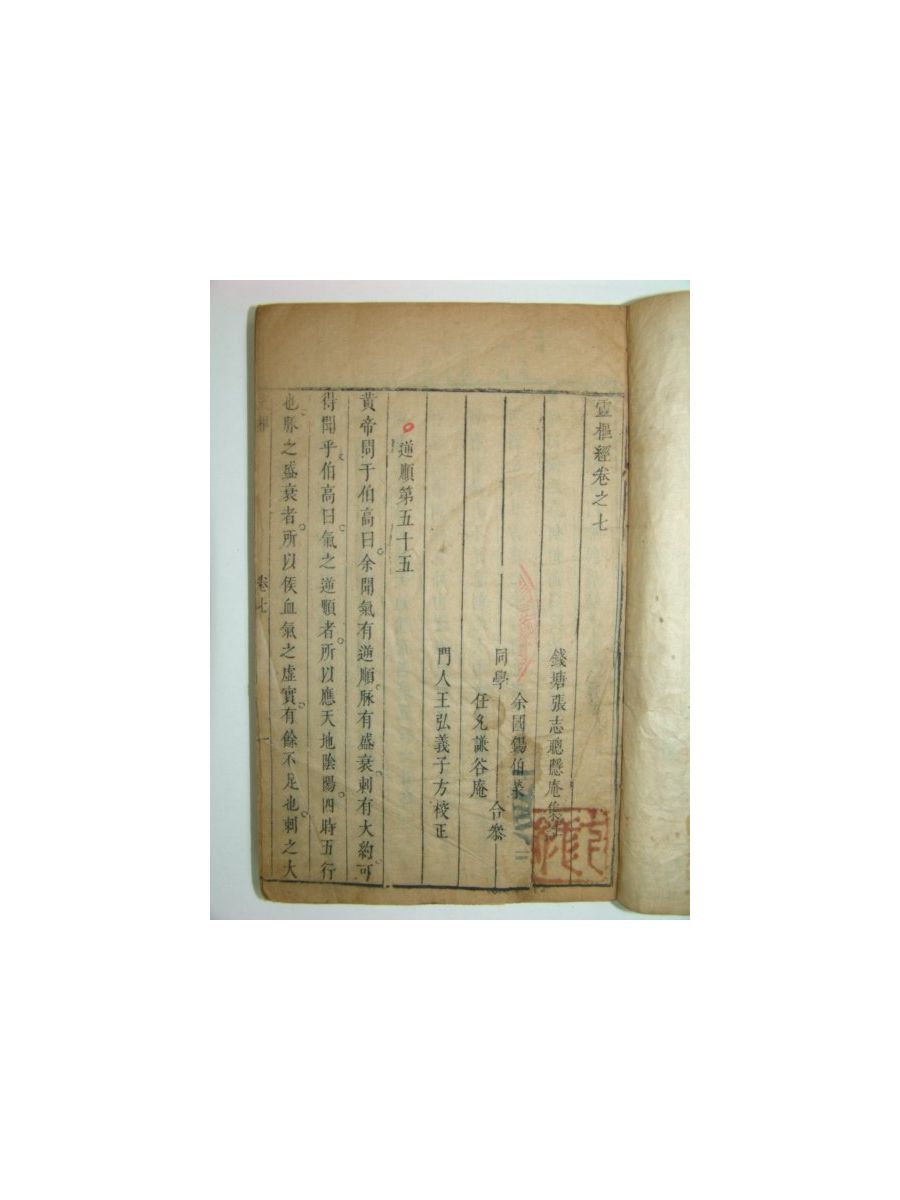 靈樞經卷之七
錢塘張志聰隱庵集
余國錫伯
同學 合叅
任允謙谷庵
門人王弘義子方校正
逆順第五十五
黃帝問于伯高曰余聞氣有逆順脉有盛衰刺有大約可
得聞乎伯高曰氣之逆順者所以應天地陰陽四時五行
也脉之盛衰者所以候血氣之虛實有餘不足也刺之大
卷七 一